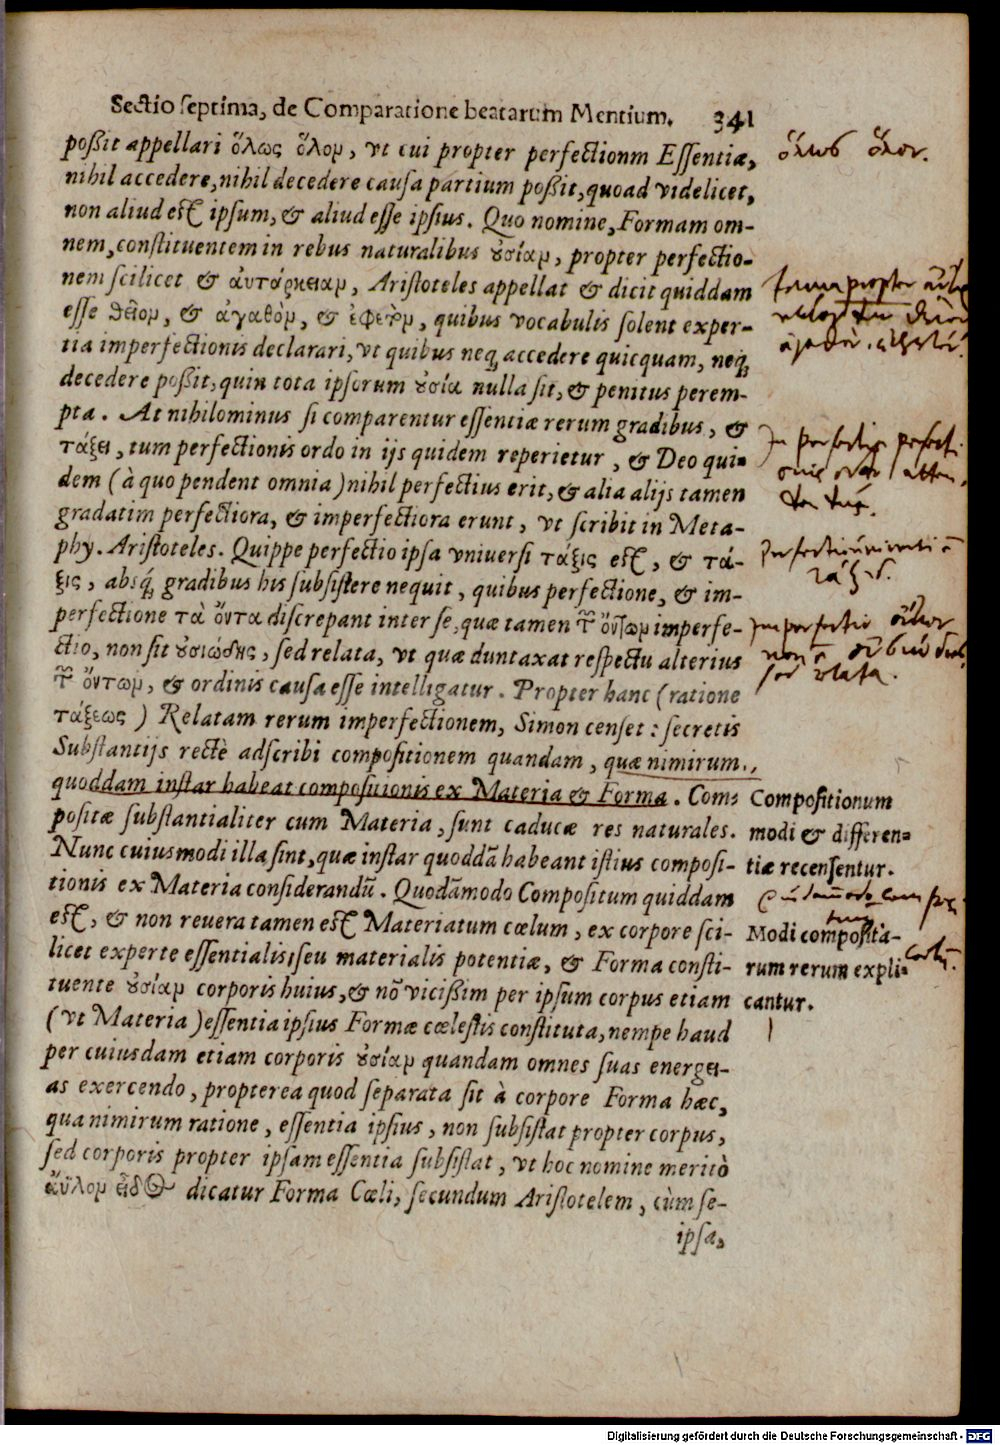 Sectio septima, de Comparatione beatarum Mentium. 341
poßit appellari ὅλως ὅλομ, vt cui propter perfectionm Essentiæ,
nihil accedere, nihil decedere causa partium poßit, quoad videlicet,
non aliud est ipsum, & aliud esse ipsius. Quo nomine, Formam om-
nem, constituentem in rebus naturalibus ȣσίαμ, propter perfectio-
nem scilicet & αὐτάρκειαμ, Aristoteles appellat & dicit quiddam
esse θεῖομ, & ἀγαθὸμ, & ἐφετὸμ, quibus vocabulis solent exper-
tia imperfectionis declarari, vt quibus neq; accedere quicquam, neq;
decedere poßit, quin tota ipsorum ȣσία nulla sit, & penitus perem-
pta. At nihilominus si comparentur essentiæ rerum gradibus, &
τάξει, tum perfectionis ordo in ijs quidem reperietur, & Deo qui-
dem (à quo pendent omnia) nihil perfectius erit, & alia alijs tamen
gradatim perfectiora, & imperfectiora erunt, vt scribit in Meta-
phy. Aristoteles. Quippe perfectio ipsa vniuersi τάξις est, & τά-
ξις, absq; gradibus his subsistere nequit, quibus perfectione, & im-
perfectione τὰ ὄντα discrepant inter se, quæ tamen τῶν ὄντωμ imperfe-
ctio, non sit ȣσιώδης, sed relata, vt quæ duntaxat respectu alterius
τῶν ὄντωμ, & ordinis causa esse intelligatur. Propter hanc (ratione
τάξεως) Relatam rerum imperfectionem, Simon censet: secretis
Substantijs rectè adscribi compositionem quandam, quæ nimirum,
quoddam instar habeat compositionis ex Materia & Forma. Com-
positæ substantialiter cum Materia, sunt caducæ res naturales.
Nunc cuiusmodi illa sint, quæ instar quoddā habeant istius composi-
tionis ex Materia considerandū. Quodāmodo Compositum quiddam
est, & non reuera tamen est Materiatum cœlum, ex corpore sci-
licet experte essentialis, seu materialis potentiæ, & Forma consti-
tuente ȣσίαμ corporis huius, & nō vicißim per ipsum corpus etiam
(vt Materia) essentia ipsius Formæ cœlestis constituta, nempe haud
per cuiusdam etiam corporis ȣσίαμ quandam omnes suas energei-
as exercendo, propterea quod separata sit à corpore Forma hæc,
qua nimirum ratione, essentia ipsius, non subsistat propter corpus,
sed corporis propter ipsam essentia subsistat, vt hoc nomine meritò
ἄϋλομ εἶδος dicatur Forma Cœli, secundum Aristotelem, cùm se-
ipsa,
ὅλως ὅλον.
Compositionum
modi & differen-
tiæ recensentur.
Modi composita-
rum rerum expli-
cantur.
Digitalisierung gefördert durch die Deutsche Forschungsgemeinschaft - DFG